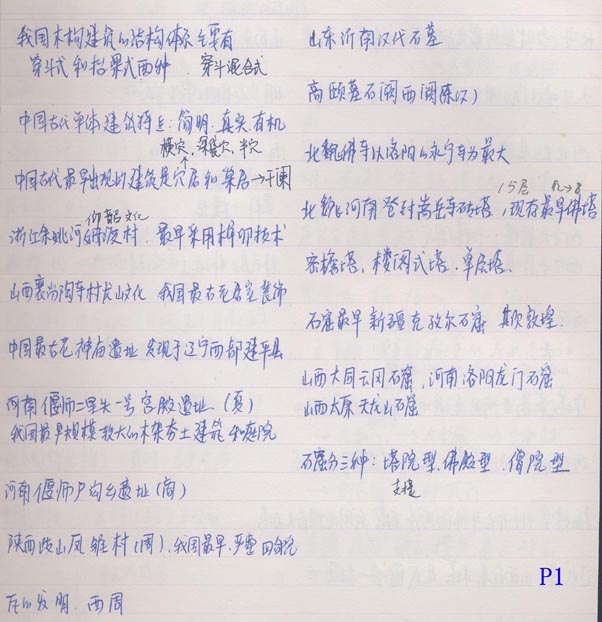 我国木构建筑的结构体系主要有
穿斗式和抬梁式两种 穿斗混合式
中国古代单体建筑特点:简明.真实有机
横穴、袋穴、半穴
中国古代最早出现的建筑是穴居和巢居→干阑
仰韶文化
浙江余姚河姆渡村.最早采用榫卯技术
山西襄汾陶寺村龙山文化 我国最古老居室装饰
中国最古老神庙遗址发现于辽宁西部建平县
河南偃师二里头一号宫殿遗址.(夏)
我国最早规模较大的木架夯土建筑和庭院
河南偃师尸沟乡遗址(商)
陕西岐山凤雏村(周).我国最早.严整四合院
瓦的发明.西周
山东沂南汉代石墓
高颐墓石阙西阙(东汉)
北魏佛寺以洛阳的永宁寺为最大
15层
北魏的河南登封嵩岳寺砖塔,现存最早佛塔
密檐塔.楼阁式塔.单层塔.
石窟最早新疆克孜尔石窟 其次敦煌.
山西大同云冈石窟,河南洛阳龙门石窟
山西太原天龙山石窟
石窟分三种:塔院型.佛殿型.僧院型
P1